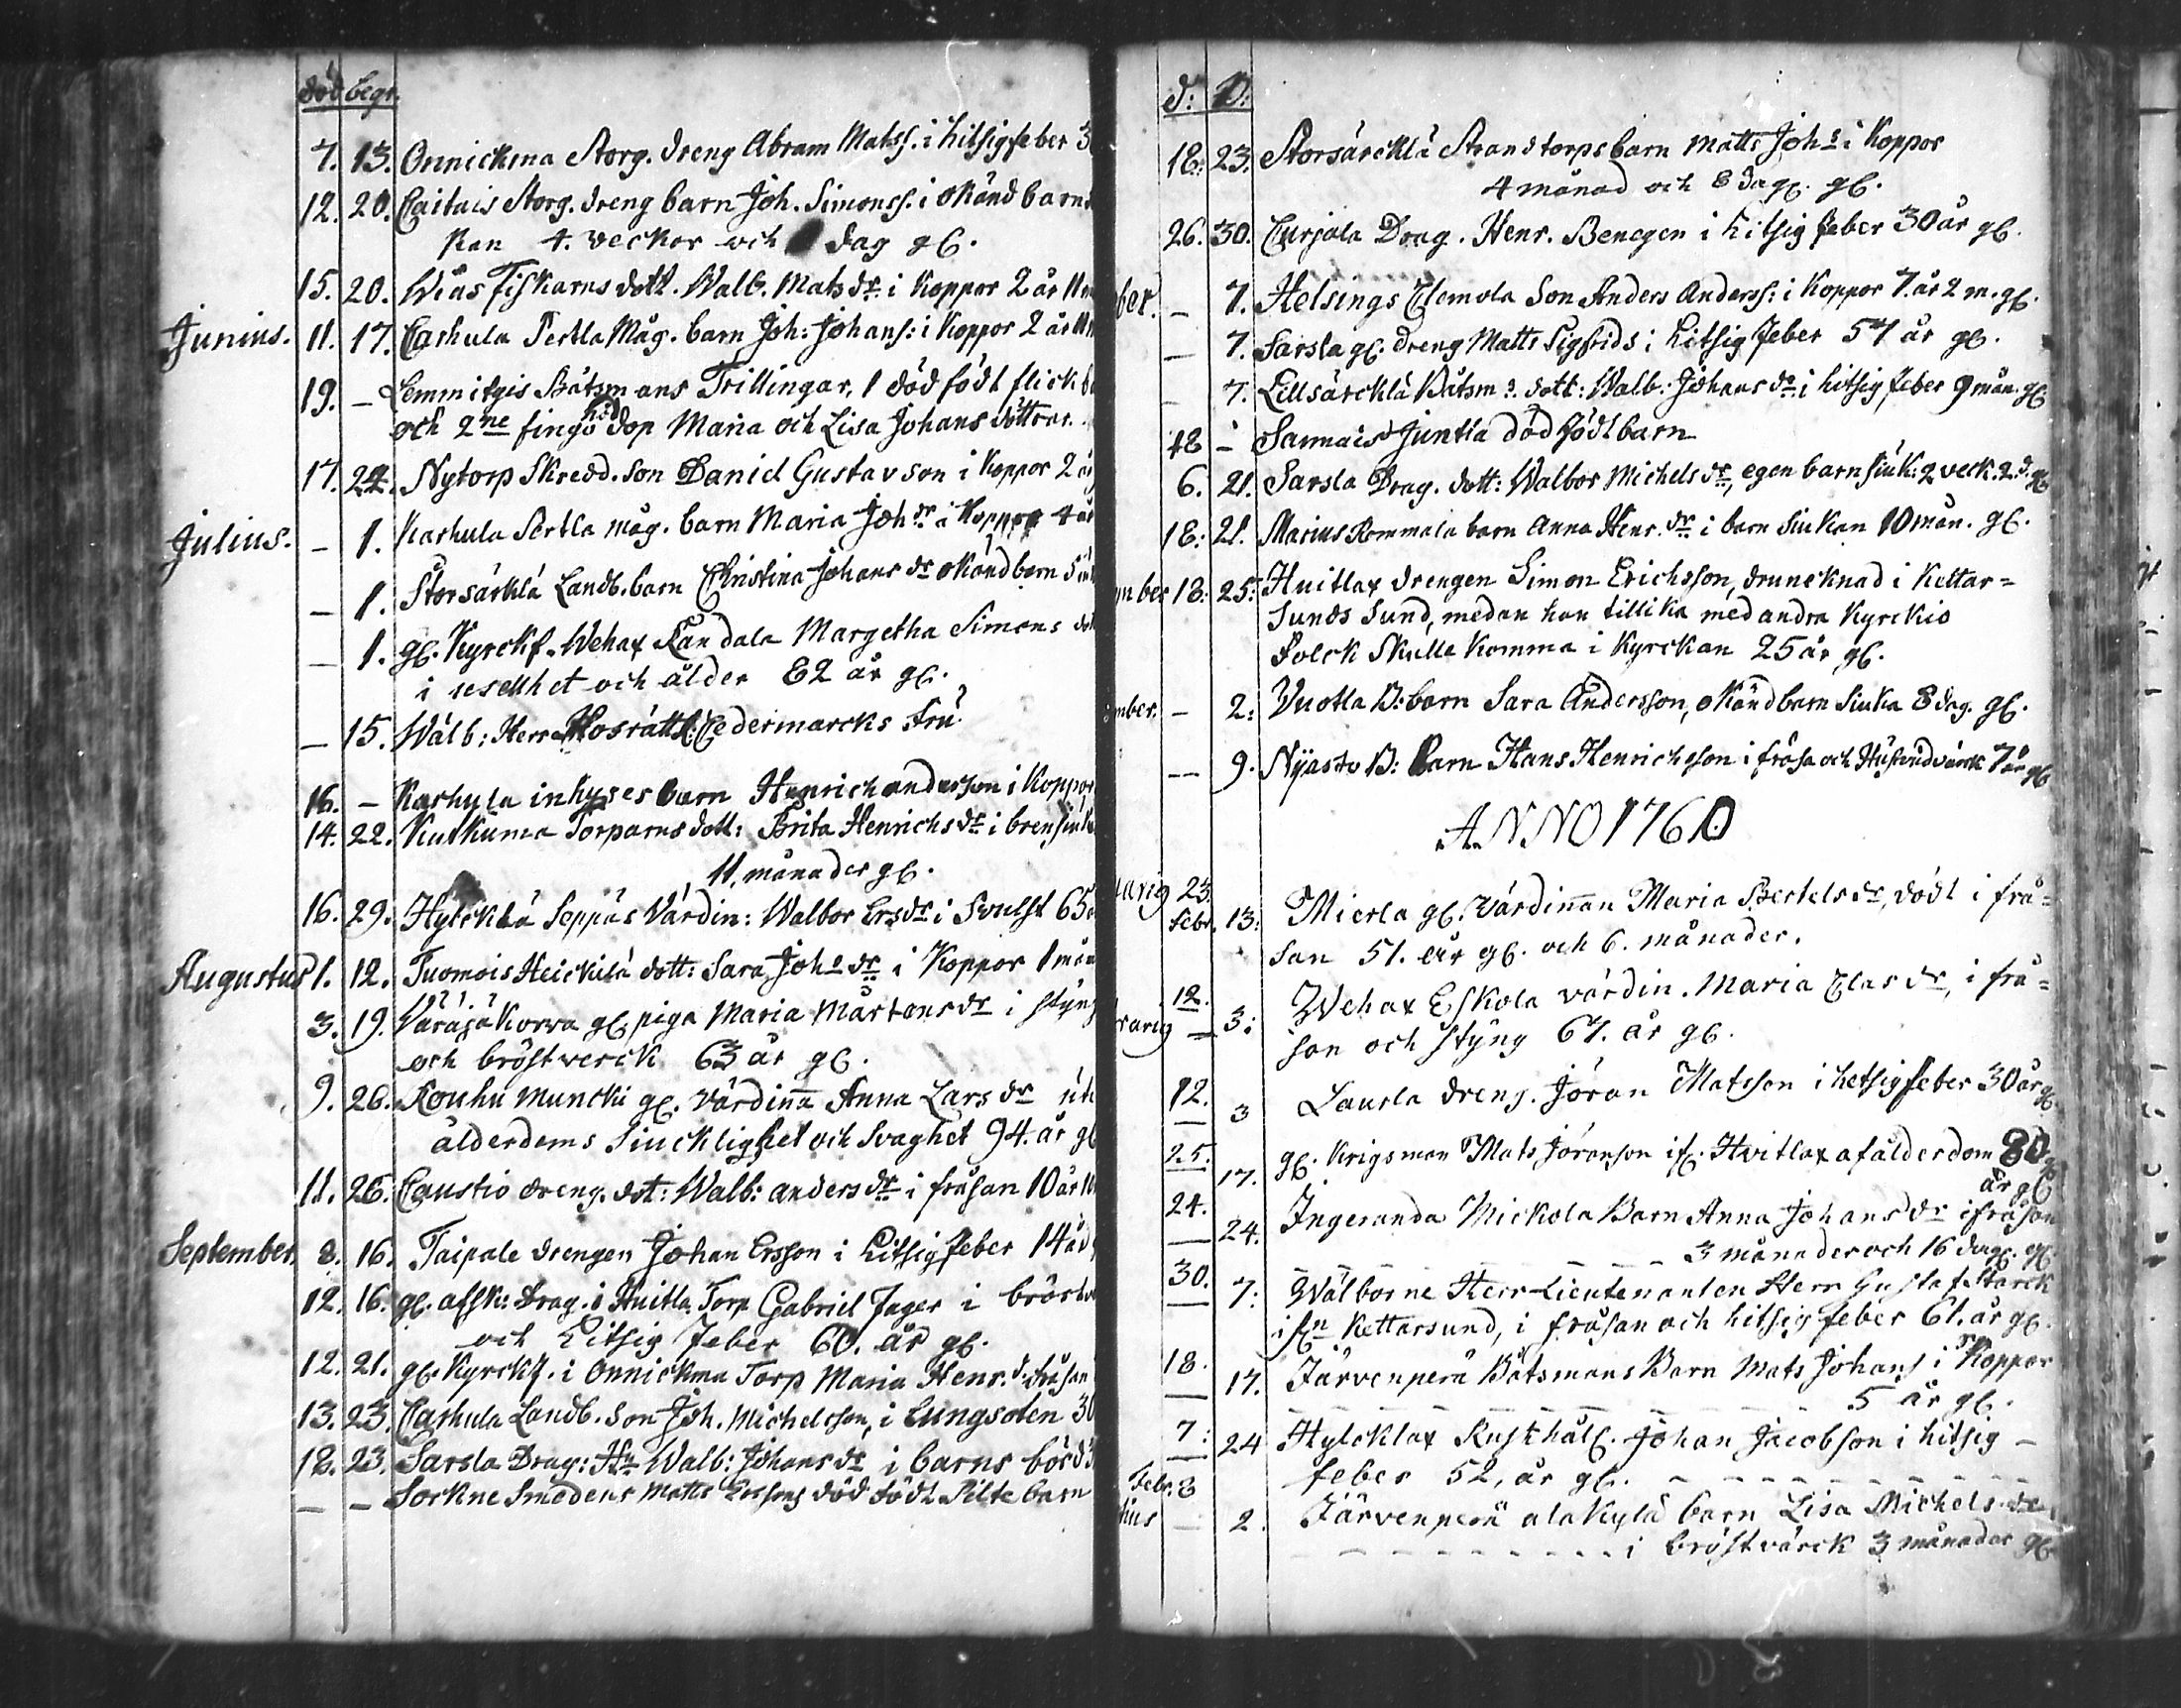 död begr.
7. 13. Onnickma Storg. dreng Abram Matss. i hitsigfeber 3
12. 20. Caitais Storg. dreng barn Joh. Simonss. i okänd barns
kan 4. veckor och dag gl.
15. 20. Wias Fiskarns dott. Walb. Mats dr i Koppor 2 år 11 m
Junius. 11. 17. Carhula Pertla Måg. barn Joh: Johans: i Koppor 2 år 11 m
19. – Lemmitgis Båtsmans Trillingar, 1 död född flick b
och 2ne fingo nöd dop Maria och Lisa Johans döttrar.
17. 22. Nytorp Skredd. son Daniel Gustavson i Koppor 2 år
Julius. – 1. Karhula Pertla måg. barn Maria Joh dr i Koppor 4 år
– 1. Storsärklä Landb. barn Christina Johans dr okänd barn
– 1. gl. Kyrckf. Wehax Randala Margetha Simons dot
i uselhet och ålder 82 år gl.
– 15. Wälb: Herr Hofrättl: Cedermarcks Fru
16. – Karhula inhyses barn Henrich anderson i Koppor
14. 22. Kutkuma Torparns dott: Brita Henrichs dr i bren
11. månader gl.
16. 29. Hylcklä Seppäs Värdin: Walbor Ersdr i Svulst 65
Augustus 1. 12. Tuomois Heickilä dott: Sara Johs dr i Koppor 1 mån
3. 19. Väräjäkorva gl. piga Maria Mårtens dr i styng
och bröstverck 63 år gl.
9. 26. Rouhu Muncki gl. Värdinna Anna Lars dr
ålderdoms Siucklighet och Svaghet 94. år gl
11. 26. Caustio dreng. dot: Walb: anders dr i fråsan 10 år
September. 8. 16. Taipale drengen Johan Ersson i hitsig feber 14 år
12. 16. gl. afsk: Drag. i Huitla Torp Gabriel Jager i bröst
och hitsig feber 60. år gl.
12. 21. gl. Kyrckf. i Onnickma Torp Maria Henr. d. fråsan
13. 23. Carhula Landb. Son Joh. Michelsson, i Lungsoten 30
18. 23. Sarsla Drag: Hu Walb: Johans dr i barns börd
– – Sorkne Smedens Matts Erssons död född Pilte barn
d: D:
18: 23. Storsärcklä Strandtorps barn Matts Johs i Koppor
4 månad och 8 dag. gl.
26. 30. Curjala Drag. Henr. Benegen i hitsig feber 30 år gl.
ber. – 7. Helsings Clemola Son Anders Anderss: i Koppor 7. år 2 m. gl.
– 7. Sarsla gl. dreng Matts Sigfrids i hitsig feber 57 år gl.
– 7. Lillsärcklä Båtsms dott: Walb. Johans dr i hitsig feber 9 mån. gl.
18 – Sannais Juntla död född barn
6. 21. Sarsla Drag. dott: Walbor Michels dr, egen barn siuk: 2 veck. 2 d. gl
18: 21. Marius Rommala barn Anna Henr. dr i barn Siukan 10 mån. gl.
mber 18: 25: Huitlax drengen Simon Erichsson, druncknad i Kettar=
Sunds Sund, medan han tillika med andra Kyrckio
Folck Skulle Komma i Kyrckan 25 år gl.
mber. – 2: Vuotla B: barn Sara Andersson, okänd barn Siuka 8 dag. gl.
– 9. Nyåsto B: Barn Hans Henrichsson i fråsa och Hufvudvärck 7 år gl
ANNO 1760
uarig 23. Febr. 13: Mierla gl. Värdinnan Maria Bertels dr, död i frå=
san 51. år gl. och 6. månader.
rarig 12. 3: Wehax Eskola värdin. Maria Clas dr, i frå=
san och styng 67. år gl.
12. 3 Laurla dreng. Jöran Matsson i hetsig feber 30 år gl.
25. 17. gl. Krigsman Mats Jöranson ifr. Hvitlax af ålderdom 80
år gl
24. 24. Ingeranda Mickola Barn Anna Johans dr i fråsan
3 månader och 16 dag. gl.
30. 7: Wälborne Herr Lieutenanten Herr Gustaf Starck
ifrn Kettarsund, i fråsan och hitsig feber 61. år gl.
18. 17. Järvenperä Båtsmans Barn Mats Johans i Koppor
5 år gl.
7: 24 Hylcklax Rusthåll. Johan Jacobson i hitsig –
feber 52, år gl.
Febr. 8
tius – 2. Järvenperä alakylä barn Lisa Michels dr
i bröstvärck 3 månader gl.